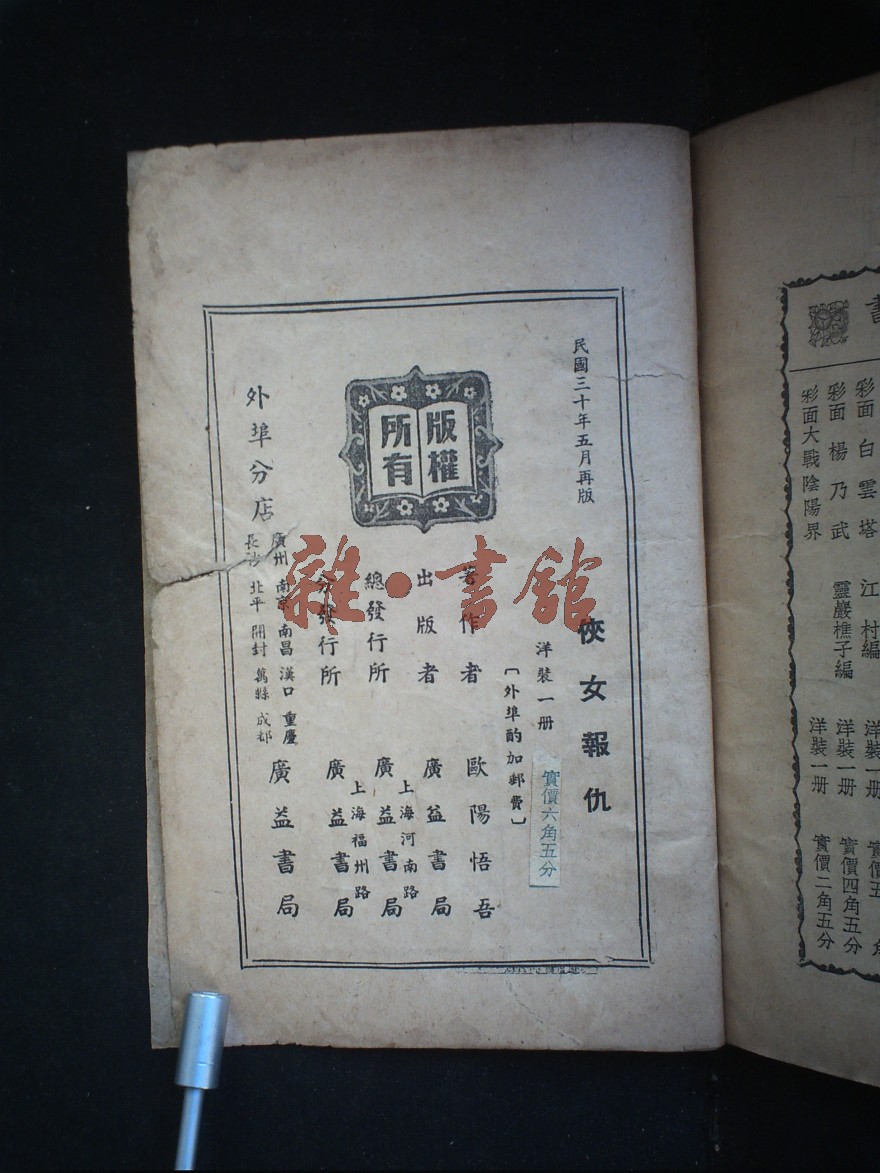 民國三十年五月再版
俠女報仇
洋裝一册
實價六角五分
〔外埠酌加郵費〕
版權所有
著作者 歐陽悟吾
出版者 廣益書局
總發行所 上海河南路 廣益書局
分發行所 上海福州路 廣益書局
外埠分店 廣州 南京 南昌 漢口 重慶 長沙 北平 開封 萬縣 成都 廣益書局
雜·書館
書
彩面 白雲塔 江村編 洋裝一册 實價五角
彩面 楊乃武 靈巖樵子編 洋裝一册 實價四角五分
彩面大戰陰陽界 洋裝一册 實價二角五分